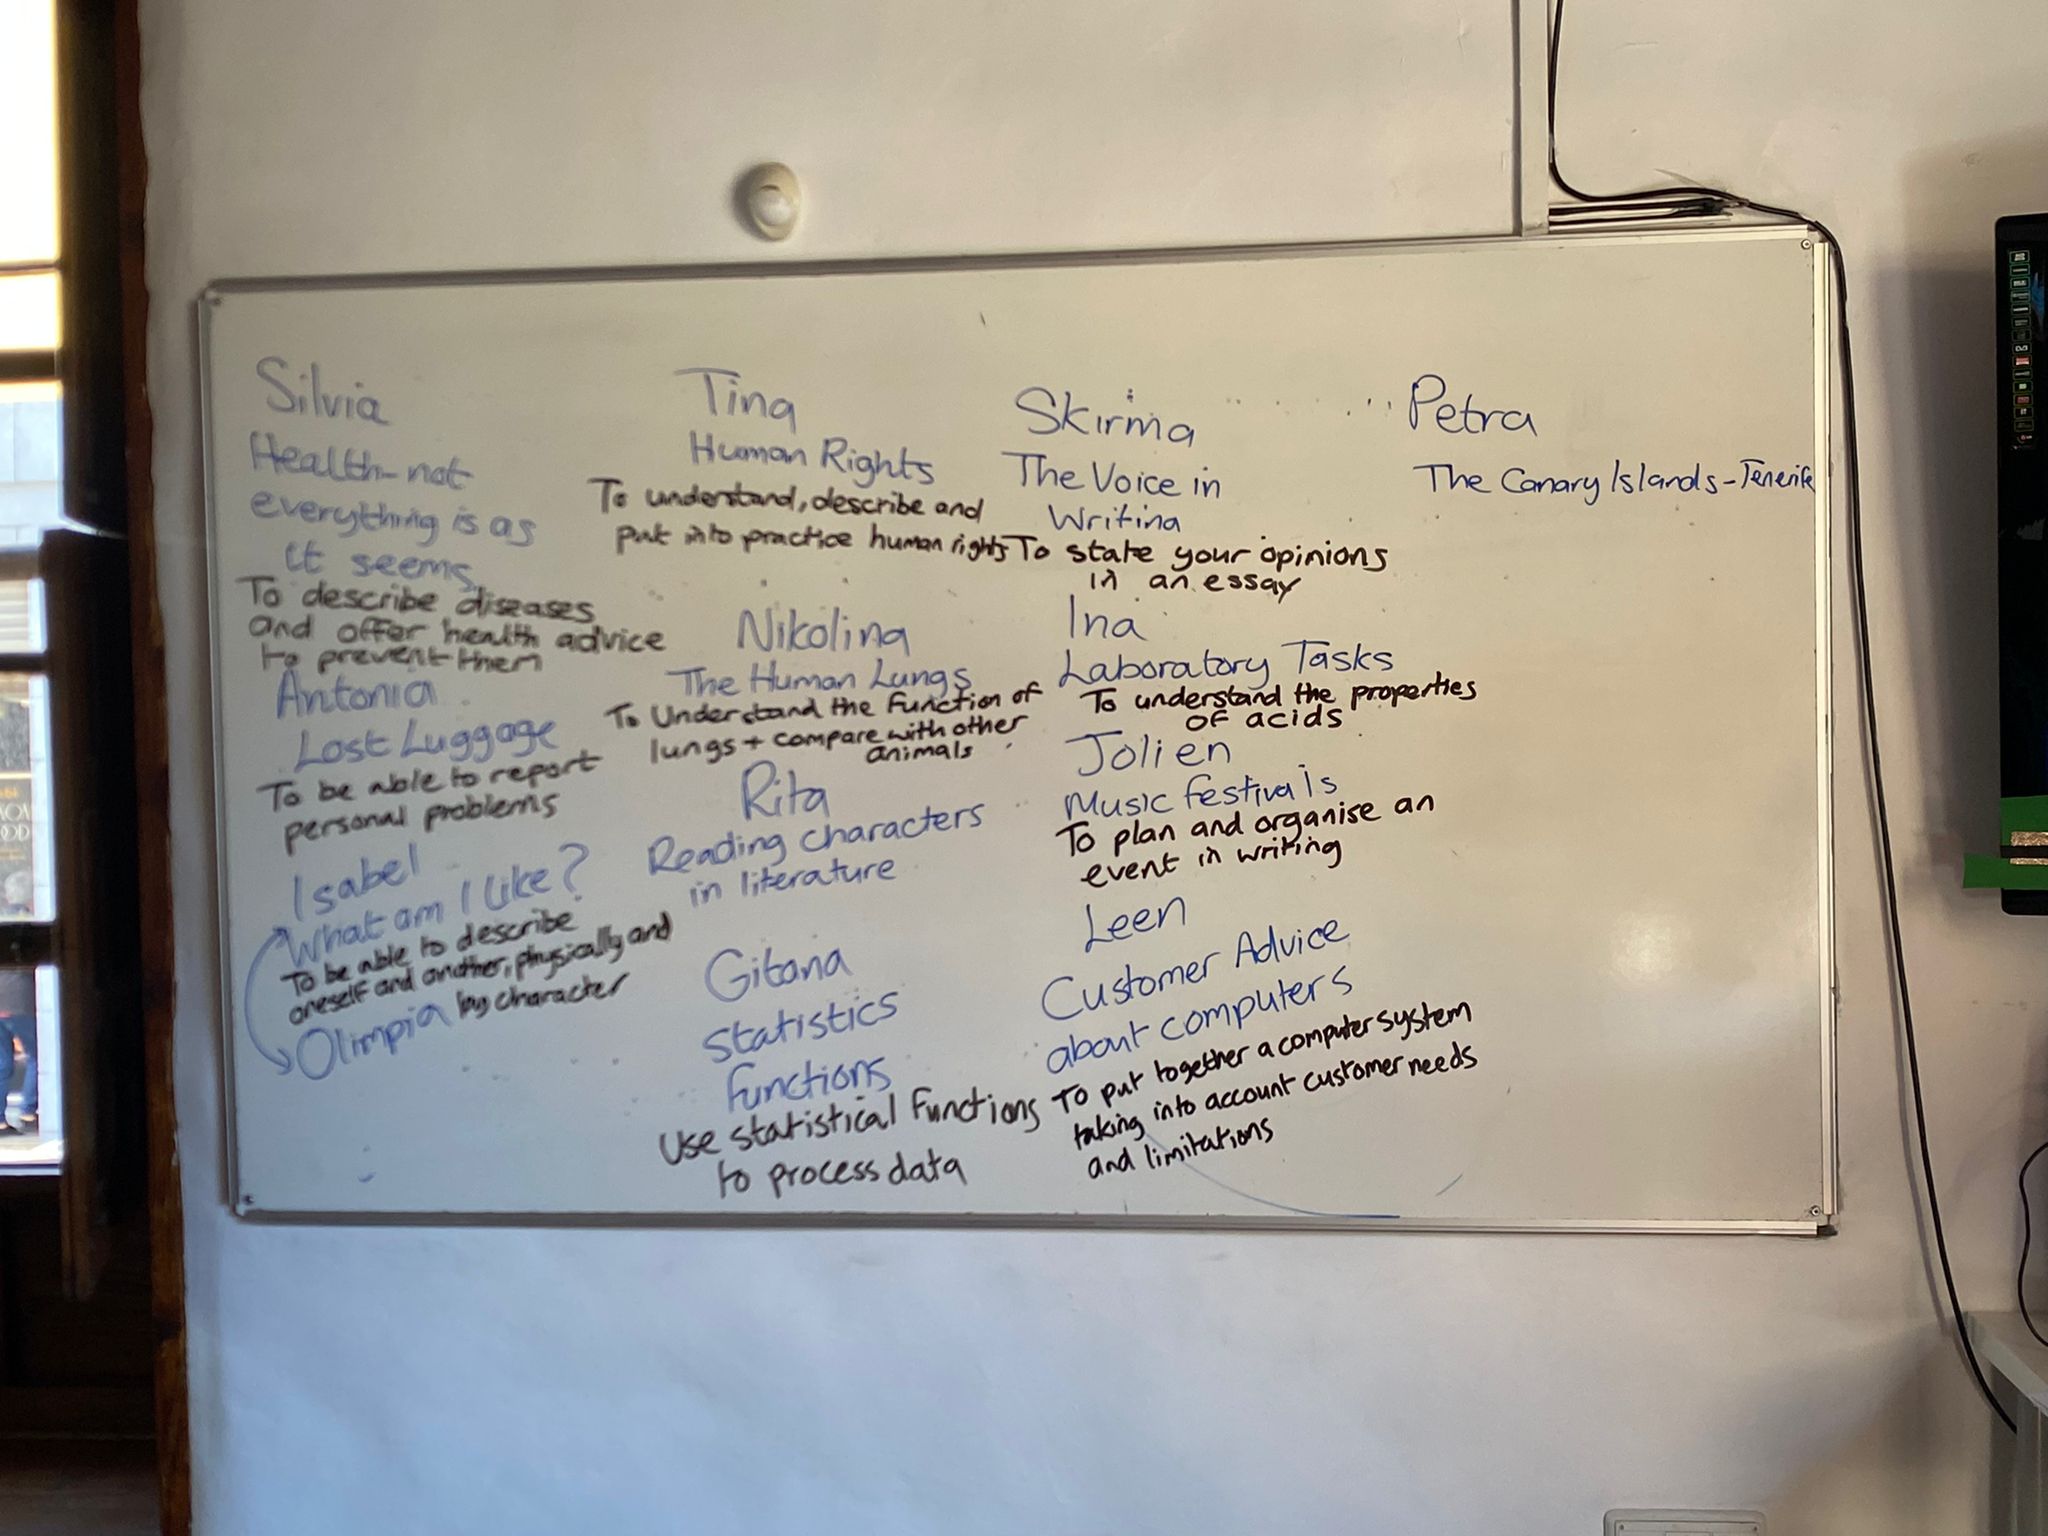 Silvia
Health-not
everything is as
it seems
To describe diseases
and offer health advice
to prevent them
Antonia
Lost Luggage
To be able to report
personal problems
Isabel
What am I like?
To be able to describe
oneself and another, physically and
by character
Olimpia
Tina
Human Rights
To understand, describe and
put into practice human rights
Nikolina
The Human Lungs
To Understand the function of
lungs + compare with other
animals
Rita
Reading characters
in literature
Gitana
Statistics
functions
Use statistical functions
to process data
Skirma
The Voice in
Writing
To state your opinions
in an essay
Ina
Laboratory Tasks
To understand the properties
of acids
Jolien
Music festivals
To plan and organise an
event in writing
Leen
Customer Advice
about computers
To put together a computer system
taking into account customer needs
and limitations
Petra
The Canary Islands-Tenerife